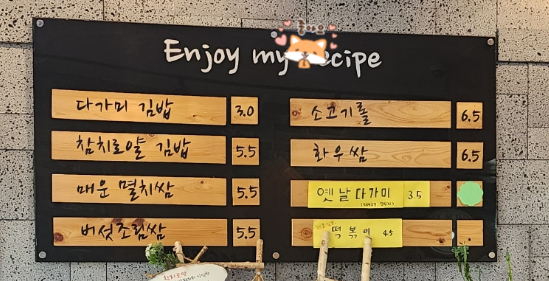 Enjoy my recipe
다가미 김밥 3.0
참치로얄 김밥 5.5
매운 멸치쌈 5.5
버섯조림쌈 5.5
소고기롤 6.5
화우쌈 6.5
옛날다가미 3.5
떡볶이 4.5